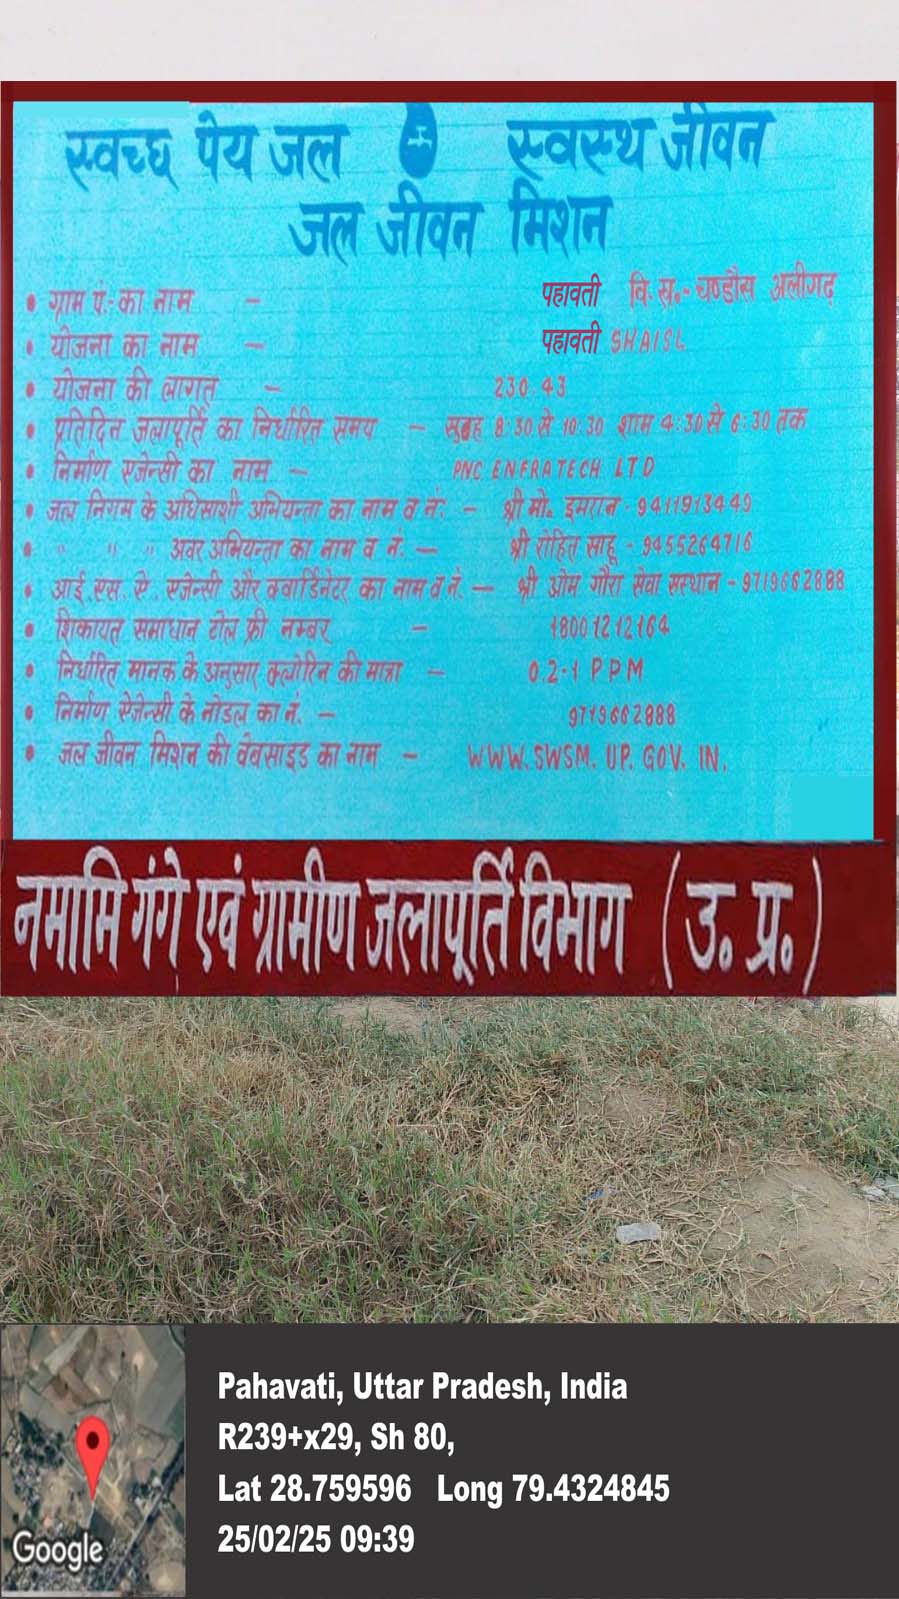 स्वच्छ पेय जल स्वस्थ जीवन
जल जीवन मिशन
• ग्राम पं:- का नाम - पहावती वि. ख.- चण्डौस अलीगढ़
• योजना का नाम - पहावती SHAISL
• योजना की लागत - 230.43
• प्रतिदिन जलापूर्ति का निर्धारित समय - सुबह 8:30 से 10:30 शाम 4:30 से 6:30 तक
• निर्माण एजेन्सी का नाम - PNC ENFRATECH LTD
• जल निगम के अधिसाशी अभियन्ता का नाम व नं: - श्री मो. इमरान - 9411913449
• " " " अवर अभियन्ता का नाम व नं. - श्री रोहित साहू - 9455264716
• आई. एस. ए. एजेन्सी और क्वार्डिनेटर का नाम व नं. - श्री ओम गौरा सेवा सस्थान - 9719662888
• शिकायत समाधान टोल फ्री नम्बर - 18001212164
• निर्धारित मानक के अनुसार क्लोरिन की मात्रा - 0.2-1 PPM
• निर्माण ऐजेन्सी के नोडल का नं. - 9719662888
• जल जीवन मिशन की वेबसाइड का नाम - WWW.SWSM.UP.GOV.IN.
नमामि गंगे एवं ग्रामीण जलापूर्ति विभाग (उ. प्र.)
Pahavati, Uttar Pradesh, India
R239+x29, Sh 80,
Lat 28.759596 Long 79.4324845
25/02/25 09:39
Google